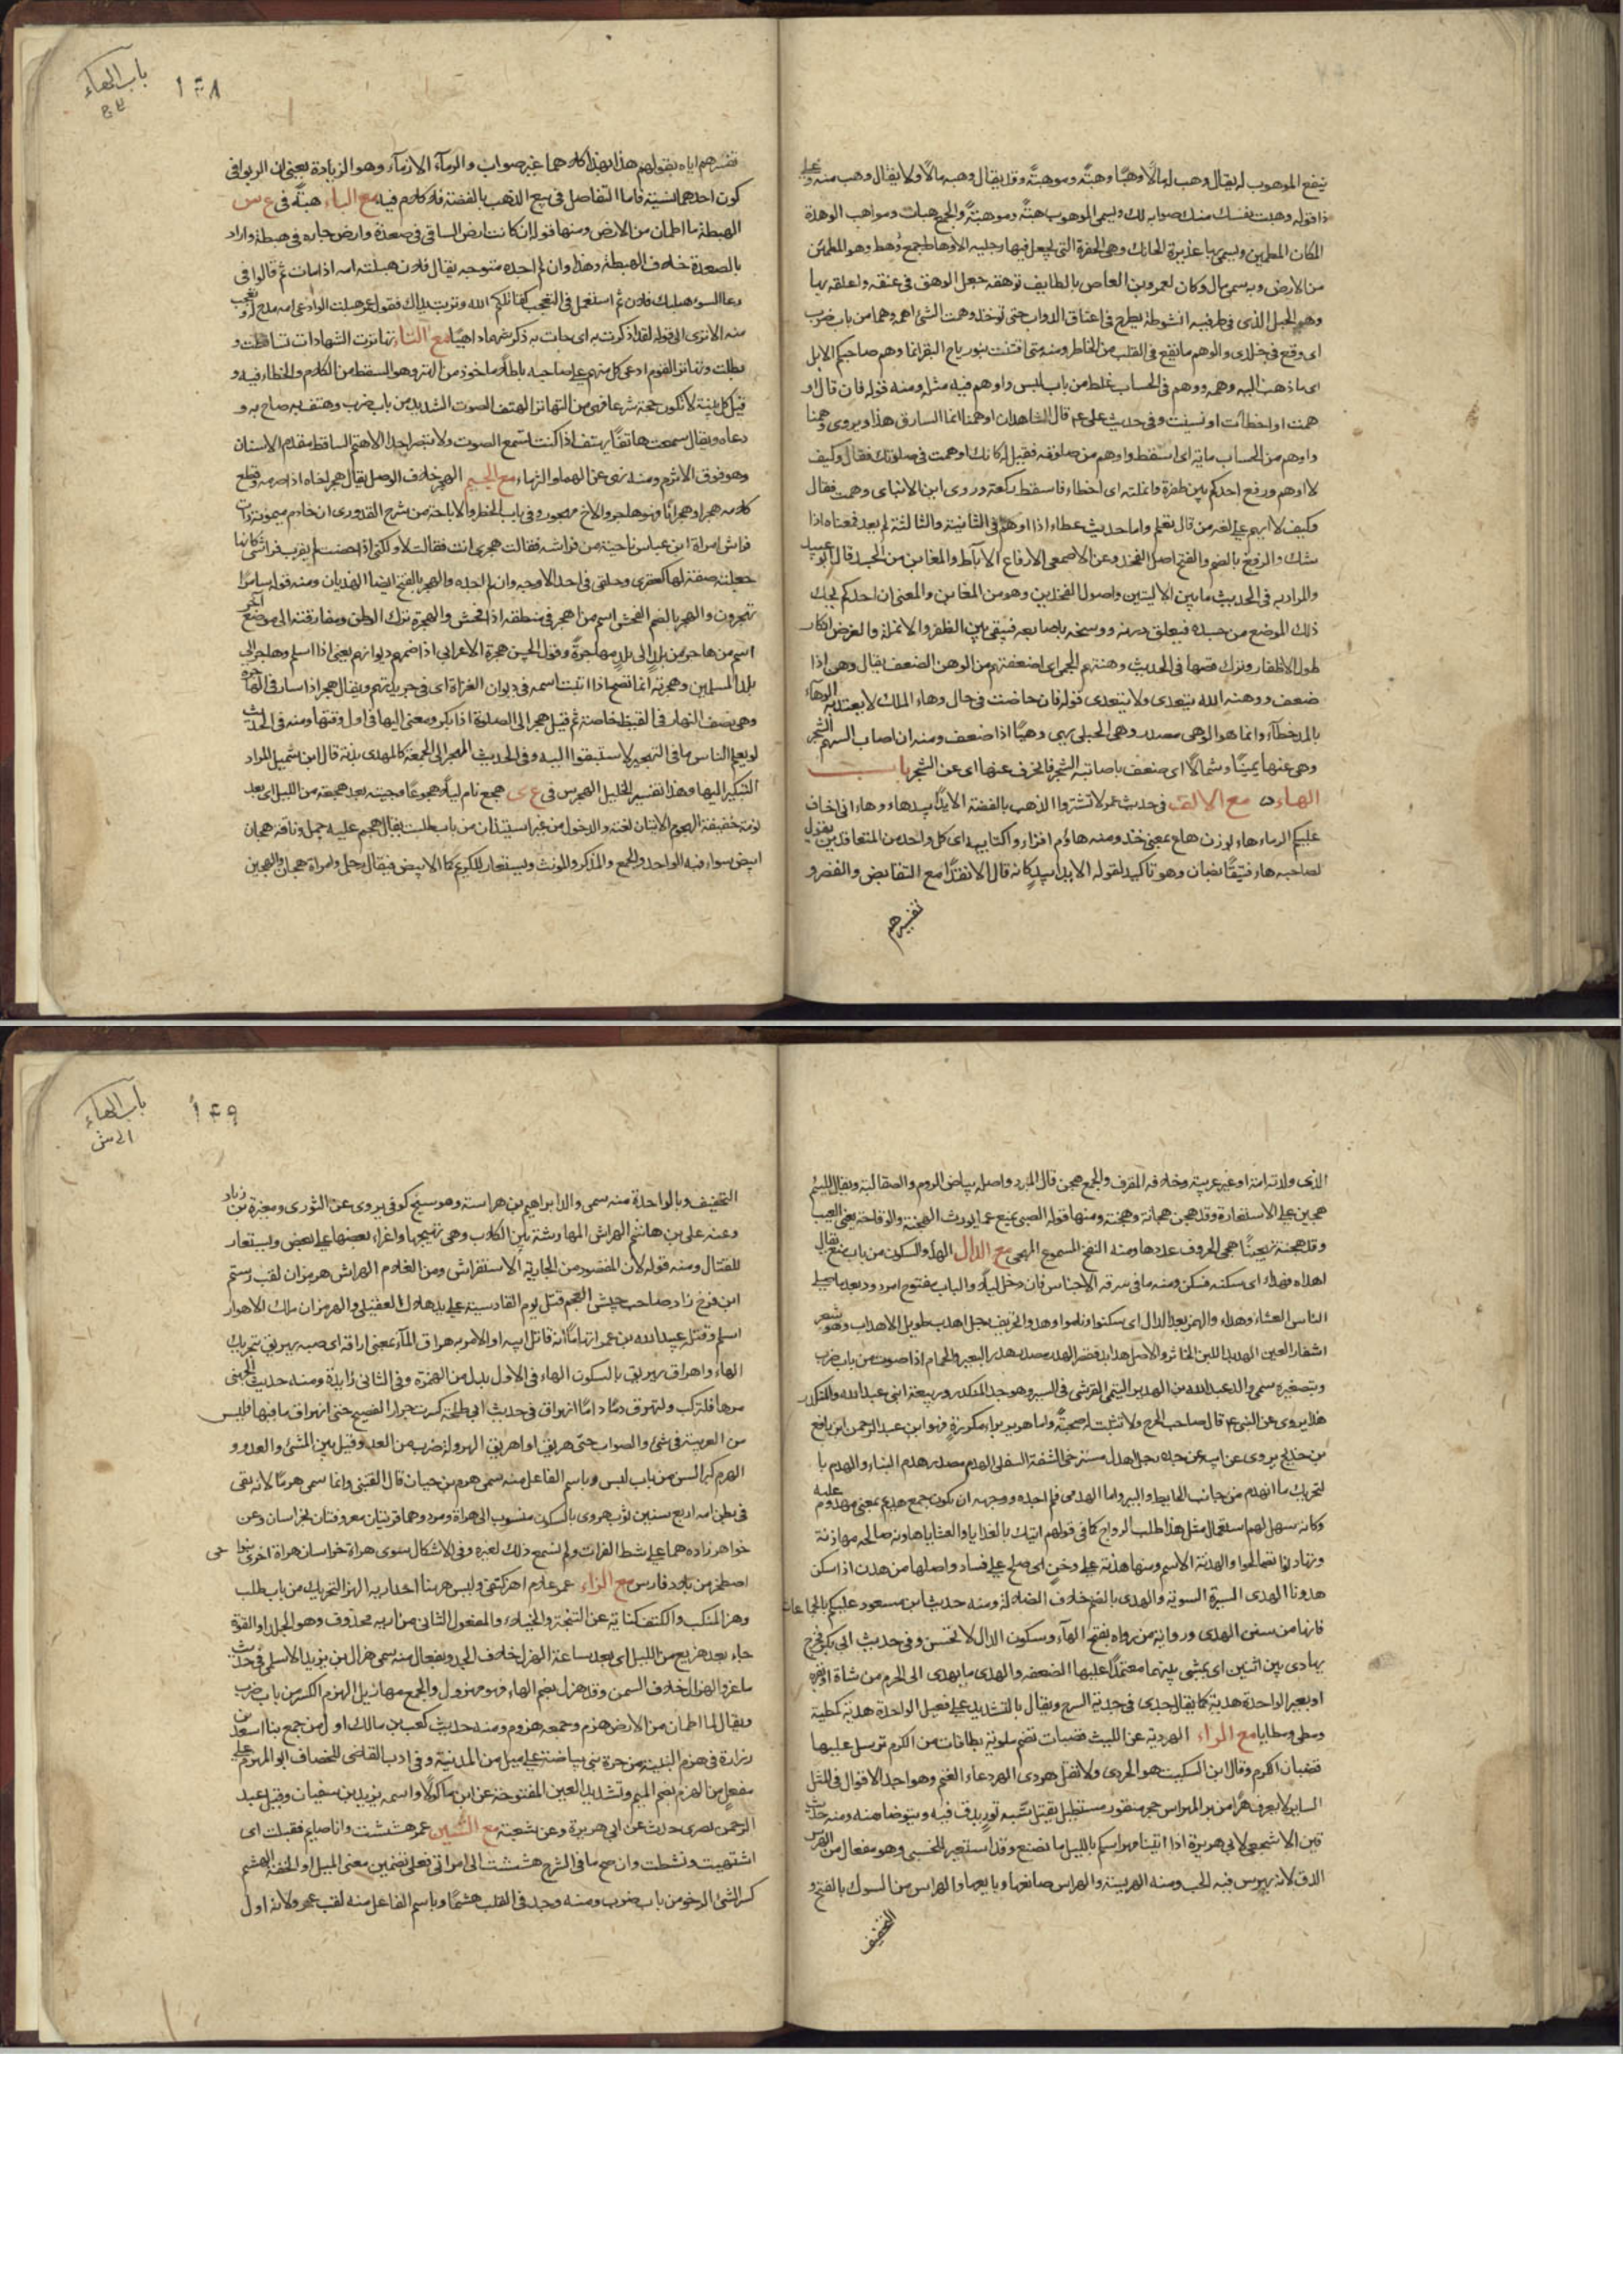 ينفع الموهوب له يقال وهب له مالا وهبا وهبة وموهبة وقد يقال وهبه مالا ولا يقال وهب منه وعلى
ذا قوله وهبت نفسك منك صوابه لك ويسمى الموهوب هبة وموهبة والجمع هبات ومواهب الوهدة
المكان المطمئن ويسمى بها الحفرة التى يجعل فيها رجليه الاوهاط جمع وهط وهو المطمئن
من الارض وبه سمى مال كان لعمرو بن العاص بالطايف توهقه جعل الوهق فى عنقه واعلقه بها
وهو الحبل الذى فى طرفيه انشوطة يطرح فى اعناق الدواب حتى توخذ وهمت الشئ اهمه وهما من باب ضرب
اى وقع فى خلدى والوهم ما يقع فى القلب من الخاطر ومنه متى افتنت بنو رياح البقر انما وهم صاحبكم الابل
اى ما ذهب اليه وهمه ووهم فى الحساب غلط من باب لبس واوهم فيه مثله ومنه قوله فان قال او
همت او اخطأت او نسيت وفى حديث على ع م قال الشاهدان اوهمنا انما السارق هذا ويروى وهمنا
واوهم من الحساب ماية اى اسقط واوهم من صلوته فقيل له كانك اوهمت فى صلوتك فقال وكيف
لا اوهم ورفغ احدكم بين ظفره وانملته اى اخطاء فاسقط ركعة وروى ابن الانبارى وهمت فقال
وكيف لا ايهم على لغة من قال تعلم واما حديث عطاء اذا اوهم فى الثانية والثالثة لم يعد فمعناه اذا
شك والرفغ بالضم والفتح اصل الفخذ وعن الاصمعى الارفاغ الاباط والمغابن من الجسد قال ابو عبيد
والمراد به فى الحديث ما بين الاليتين واصول الفخذين وهو من المغابن والمعنى ان احدكم يحك
ذلك الموضع من جسده فيعلق درنه ووسخه باصابعه فيبقى بين الظفر والانملة والغرض انكار
طول الاظفار وترك قصها فى الحديث وهنتهم الحمى اى اضعفتهم من الوهن الضعف يقال وهن اذا
ضعف ووهنه الله يتعدى ولا يتعدى قوله فان حاضت فى حال وهاء الملك لا يعتد به الوهاء
بالمد خطآء وانما هو الوهى مصدر وهى الحبل يهى وهيا اذا ضعف ومنه ان اصاب السهم الشجر
وهى عنها يمينا وشمالا اى ضعف باصابته الشجر فانحرف عنها اى عن الشجر باب
الهاء مع الالف فى حديث عمر لا تشتروا الذهب بالفضة الا يدا بيد هاء وهاء انى اخاف
عليكم الرماء هاء بوزن هاع بمعنى خذ ومنه هاؤم اقراو اكتابيه اى كل واحد من المتعاقدين يقول
لصاحبه هاء فيتقابضان وهو تاكيد لقوله الا يدا بيد كانه قال الا نقدا مع التقابض والقصر و
تفسيرهم
باب الهاء
١٤٨
تفسيرهم اياه بقولهم هذا بهذا كلاهما غير صواب والرمآء الازماء وهو الزيادة يعنى ان الربوا فى
كون احدهما نسيئة فاما التفاصل فى بيع الذهب بالفضة فلا كلام فيه مع الباء هبة فى ع س
الهبطة ما اطمان من الارض ومنها قوله ان كانت ارض الساقى فى صعدة وارض جاره فى هبطة واراد
بالصعدة خلاف الهبطة وهذا وان لم اجده متوجه يقال فلان هبلته امه اذا مات ثم قالوا فى
دعا السوء هبلك فلان ثم استعمل فى التعجب كقاتلكم الله وتربت يداك فقول عمر هبلت الوادعى امه مدح له وتعجب
منه الا ترى الى قوله لقد اذكرت به اى جاءت به ذكرا شهما داهيا مع التاء تهاترت الشهادات تساقطت و
بطلت وتهاتر القوم ادعى كل منهم على صاحبه باطلا ماخوذ من الهتر وهو السقط من الكلام والخطاء فيه و
قيل كل بينة لا تكون حجة شرعا فهى من التهاتر الهتف الصوت الشديد من باب ضرب وهتف به صاح به و
دعاه ويقال سمعت هاتفا يهتف اذا كنت تسمع الصوت ولا تبصر احدا الاهتم الساقط مقدم الاسنان
وهو فوق الاثرم ومنه نهى عن الهتماء مع الجيم الهجر خلاف الوصل يقال هجر اخاه اذا صرمه وقطع
كلامه هجرا وهجرانا وهو هاجر والاخ مهجور وفى باب الحظر والاباحة من شرح القدورى ان خادم ميمونة رات
فراش امراة ابن عباس ناحية من فراشه فقالت هجرى انت فقالت لا ولكنى اذا حضت لم يقرب فراشى كانها
جعلته صفة لها كعقرى وحلقى فى احد الاوجه وان لم اجده والهجر بالفتح ايضا الهذيان ومنه قوله سامرا
تهجرون والهجر بالضم الفحش اسم من اهجر فى منطقه اذا افحش والهجرة ترك الوطن ومفارقته الى موضع آخر
اسم من هاجر من بلد الى بلد مهاجرة وقول الحسن هجرة الاعرابى اذا ضمهم ديوانهم يعنى اذا اسلم وهاجر الى
بلد المسلمين وهجرته انما تصح اذا اثبت اسمه فى ديوان الغزاة اى فى جريدتهم ويقال هجر اذا سار فى الهاجرة
وهى نصف النهار فى القيظ خاصة ثم قيل هجر الى الصلوة اذا بكر ومعنى اليها فى اول وقتها ومنه فى الحديث
لو يعلم الناس ما فى التهجير لاستبقوا اليه وفى الحديث المهجر الى الجمعة كالمهدى بدنة قال ابن شميل المراد
التبكير اليها وهذا تفسير الخليل الهجرس فى ع ى هجع نام ليلا هجوعا وجيته بعد هجعة من الليل اى بعد
نومة خفيفة الهجوم الاتيان بغتة والدخول من غير استيذان من باب طلب يقال هجم عليه جمل وناقة هجان
ابيض سواء فيه الواحد والجمع والمذكر والمونث ويستعار للكريم كالابيض فيقال رجل وامراة هجان والهجين
الذى ولدته امة او غير عربية وخلافه المقرف والجمع هجن قال المبرد واصله بياض الروم والصقالبة ويقال للئيم
هجين على الاستعارة وقد هجن هجانة وهجنة ومنها قوله الصبى يمنع عما يورث الهجنة والوقاحة يعنى العيب
وقد هجنه تهجينا هجى الحروف عددها ومنه النفخ المسموع المهجى مع الدال الهدأ والسكون من باب منع يقال
اهداه فهداء اى سكنه فسكن ومنه ما فى سرقة الاجناس فان دخل ليلا والباب مفتوح مردود بعد ما صلى
الناس العشاء وهداء والهمز بعد الدال اى سكنوا وناموا وهدوا تحريف رجل اهدب طويل الاهداب وهو شعر
اشفار العين الهدبد اللبن الخاثر والاصل هدابد فقصر الهدر مصدر هدر البعير والحمام اذا صوت من باب ضرب
وبتصغيره سمى والد عبد الله بن الهدير التيمى القرشى فى السير وهو جد المنكدر وربيعة ابنى عبد الله والمنكدر
هذا يروى عن النبى ع م قال صاحب الجرح ولا تثبت له صحبة واما هرير براء مكررة فهو ابن عبد الرحمن ابن رافع
بن خديج يروى عن ابيه عن جده رجل اهدل مسترخى الشفة السفلى الهدم مصدر هدم البناء والهدم با
لتحريك ما انهدم من جانب الحايط والبير واما الهدمى فلم اجده ووجهه ان يكون جمع هديم بمعنى مهدوم عليه
وكانه سهل لهم استعمال مثل هذا طلب الرواج كما فى قولهم اتيك بالغدايا والعشايا هادنه صالحه مهادنة
وتهادنوا تصالحوا والهدنة الاسم ومنها هدنة على دخن اى صلح على فساد واصلها من هدن اذا سكن
هدونا الهدى السيرة السوية والهدى بالضم خلاف الضلالة ومنه حديث ابن مسعود عليكم بالجماعات
فانها من سنن الهدى ورواية من رواه بفتح الهاء وسكون الدال لا تحسن وفى حديث ابى بكر فخرج
يهادى بين اثنين اى يمشى بينهما معتمدا عليهما لضعفه والهدى ما يهدى الى الحرم من شاة او بقرة
او بعير الواحدة هدية كما يقال جدى فى جدية السرج ويقال بالتشديد على فعيل الواحدة هدية كمطية
ومطى ومطايا مع الراء الهردية عن الليث قصبات تضم ملوية بطاقات من الكرم ترسل عليها
قضبان الكرم وقال ابن السكيت هو الحردى ولا تقل هردى الهر دعاء الغنم وهو احد الاقوال فى المثل
الساير لا يعرف هرا من بر المهراس حجر منقور مستطيل يقتبل شبه تور يدق فيه ويتوضا منه ومنه حديث
قين الاشجعى لابى هريرة اذا اتينا مهراسكم بالليل ما نصنع وقد استعير للخشبى وهو مفعال من الهرس
الدق لانه يهرس فيه الحب ومنه الهريسة والهراس صانعها وبايعها والهراس من السوك بالفتح و
التخفيف
باب الهاء
الى ش
١٤٩
التخفيف وبالواحدة منه سمى والد ابراهيم بن هراسة وهو شيخ كوفى يروى عن الثورى ومغيرة بن زياد
وعنه على بن هاشم الهراش المهارشة بين الكلاب وهى تهييجها واغراء بعضها على بعض ويستعار
للقتال ومنه قوله لان المقصود من الجارية الاستفراش ومن الغلام الهراش هرمزان لقب رستم
ابن فرخ زاد صاحب جيش العجم قتل يوم القادسية على يد هلال العقيلى والهرمزان ملك الاهواز
اسلم وقتله عبيد الله بن عمر اتهاما انه قاتل ابيه او الآمر به هراق المآء بمعنى اراقه اى صبه يهريق بتحريك
الهاء واهراق يهريق بالسكون الهاء فى الاول بدل من الهمزة وفى الثانى زايدة ومنه حديث الجهنى
مرها فلتركب ولتهرق دما واما انهراق فى حديث ابى طلحة كسرت جرار الفضيخ حتى انهراق ما فيها فليس
من العربية فى شئ والصواب حتى هريق او اهريق الهرولة ضرب من العدو وقيل بين المشى والعدو و
الهرم كبر السن من باب لبس وباسم الفاعل منه سمى هرم بن حيان قال القتبى وانما سمى هرما لانه بقى
فى بطن امه اربع سنين ثوب هروى بالسكون منسوب الى هراة ومرو وهما قريتان معروفتان بخراسان وعن
خواهر زاده هما على شط الفرات ولم نسمع ذلك لغيره وفى الاشكال سوى هراة خراسان هراة اخرى بنواحى
اصطخر من بلاد فارس مع الزاء عمر علام اهز كتفى وليس هيهنا احد اريه الهز التحريك من باب طلب
وهز المنكب والكتف كناية عن التبختر والخيلاء والمفعول الثانى من اريه محذوف وهو الجلد او القوة
جاء بعد هزيع من الليل اى بعد ساعة الهزل خلاف الجد وبفعال منه سمى هزال بن يزيد الاسلمى فى حديث
ماعز والهزال خلاف السمن وقد هزل بضم الهاء وهو مهزول والجمع مهازيل الهزم الكسر من باب ضرب
ويقال لما اطمان من الارض هزم وجمعه هزوم ومنه حديث كعب بن مالك اول من جمع بنا اسعد بن
زرارة فى هزم النبيت من حرة بنى بياضة على ميل من المدينة وفى ادب القاضى للخصاف ابو المهزم على
مفعل من الهزم بضم الميم وتشديد العين المفتوحة عن ابن ماكولا واسمه يزيد بن سفيان وقيل عبد
الرحمن بصرى حدث عن ابى هريرة وعن شعبة مع الشين عمر هششت وانا صايم فقبلت اى
اشتهيت ونشطت وان صح ما فى الشرح هششت الى امراتى فعلى تضمين معنى الميل او الخفة الهشم
كسر الشئ الرخو من باب ضرب ومنه وجد فى القلب هشما وباسم الفاعل منه لقب عمرو لانه اول